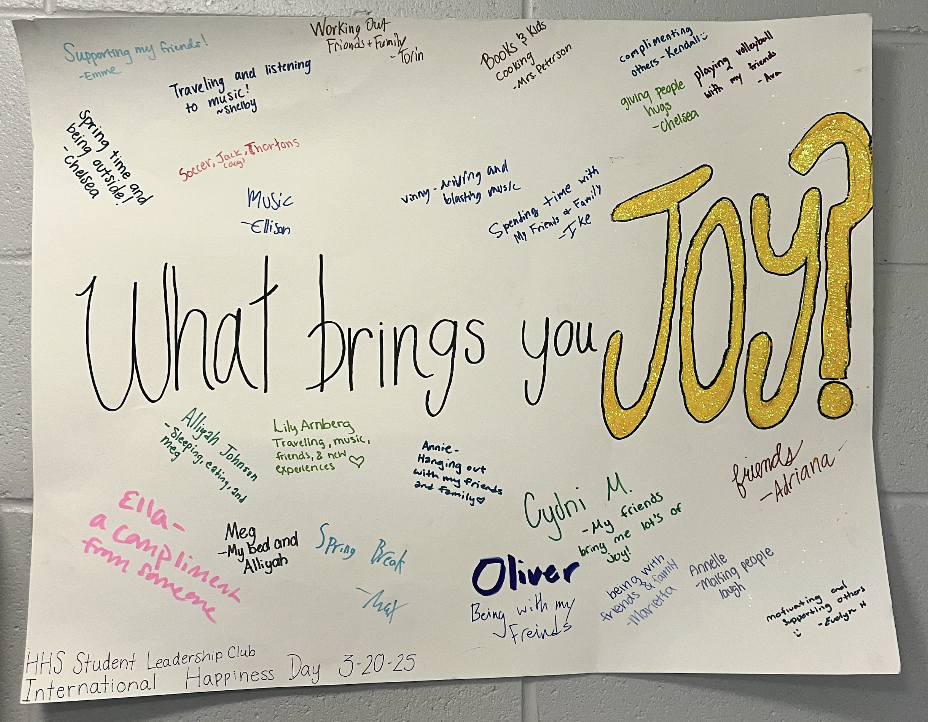 Supporting my friends!
-Emme
Working Out
Friends + Family
-Torin
Books & Kids
cooking
-Mrs. Peterson
complimenting
others - Kendall
playing volleyball
with my friends
-Ava
giving people
hugs
-Chelsea
Traveling and listening
to music!
~Shelby
Spring time and
being outside!
-Chelsea
Soccer, Jack, Thortons
Music
-Ellison
vinny - and
blasting music
Spending time with
My Friends & Family
-Ike
What brings you JOY?
Alliyah Johnson
-Sleeping, eating, and
meg
Lily Arnberg
Traveling, music,
friends, & new
experiences
Annie-
Hanging out
with my friends
and family
friends
-Adriana-
Cydni M.
-My friends
bring me lot's of
Joy!
Ella-
a compliment
from someone
Meg
-My bed and
Alliyah
Spring Break
Oliver
Being with my
Freinds
being with
friends & family
-Marietta
Annelle
-Making people
laugh
motivating and
supporting others
-Evelyn H
HHS Student Leadership Club
International Happiness Day 3-20-25